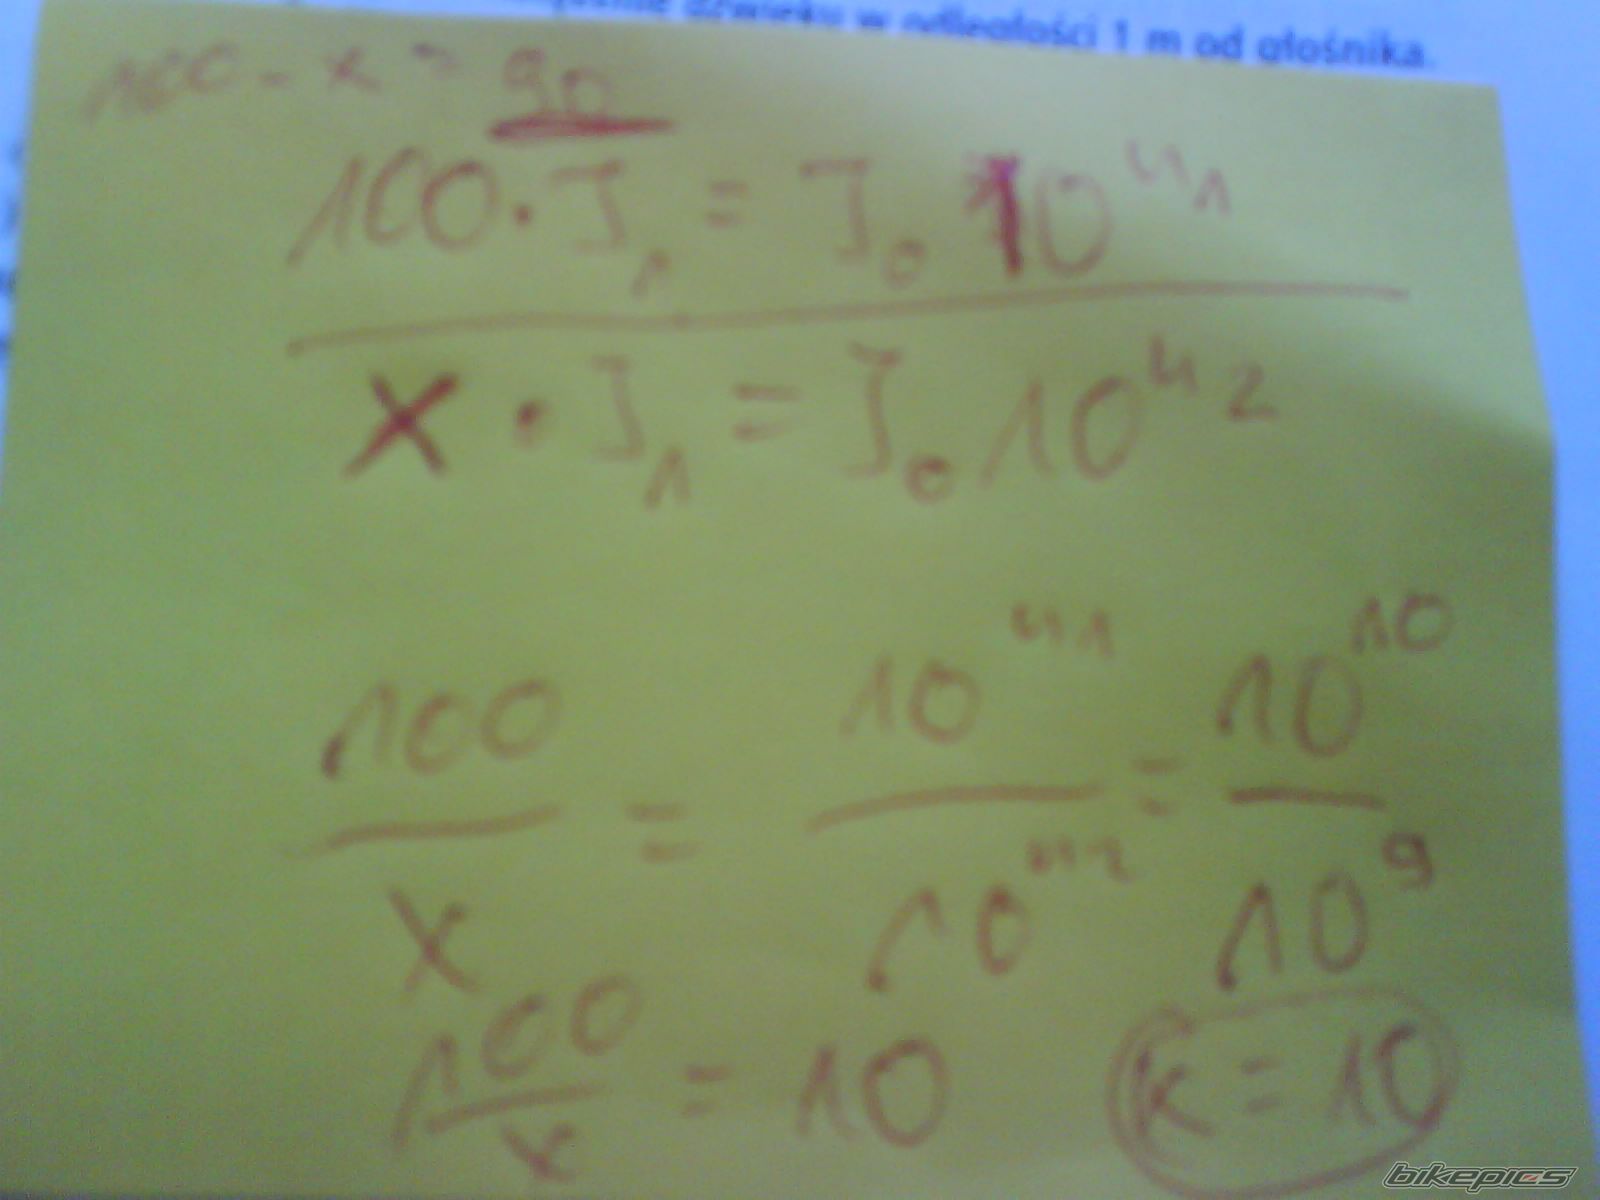 dźwięku w odległości 1 m od głośnika.
100 - x = 90
100 · I₁ = I₀ 10ᵘ¹
x · I₁ = I₀ 10ᵘ²
100/x = 10ᵘ¹/10ᵘ² = 10¹⁰/10⁹
100/x = 10 x = 10
bikepics